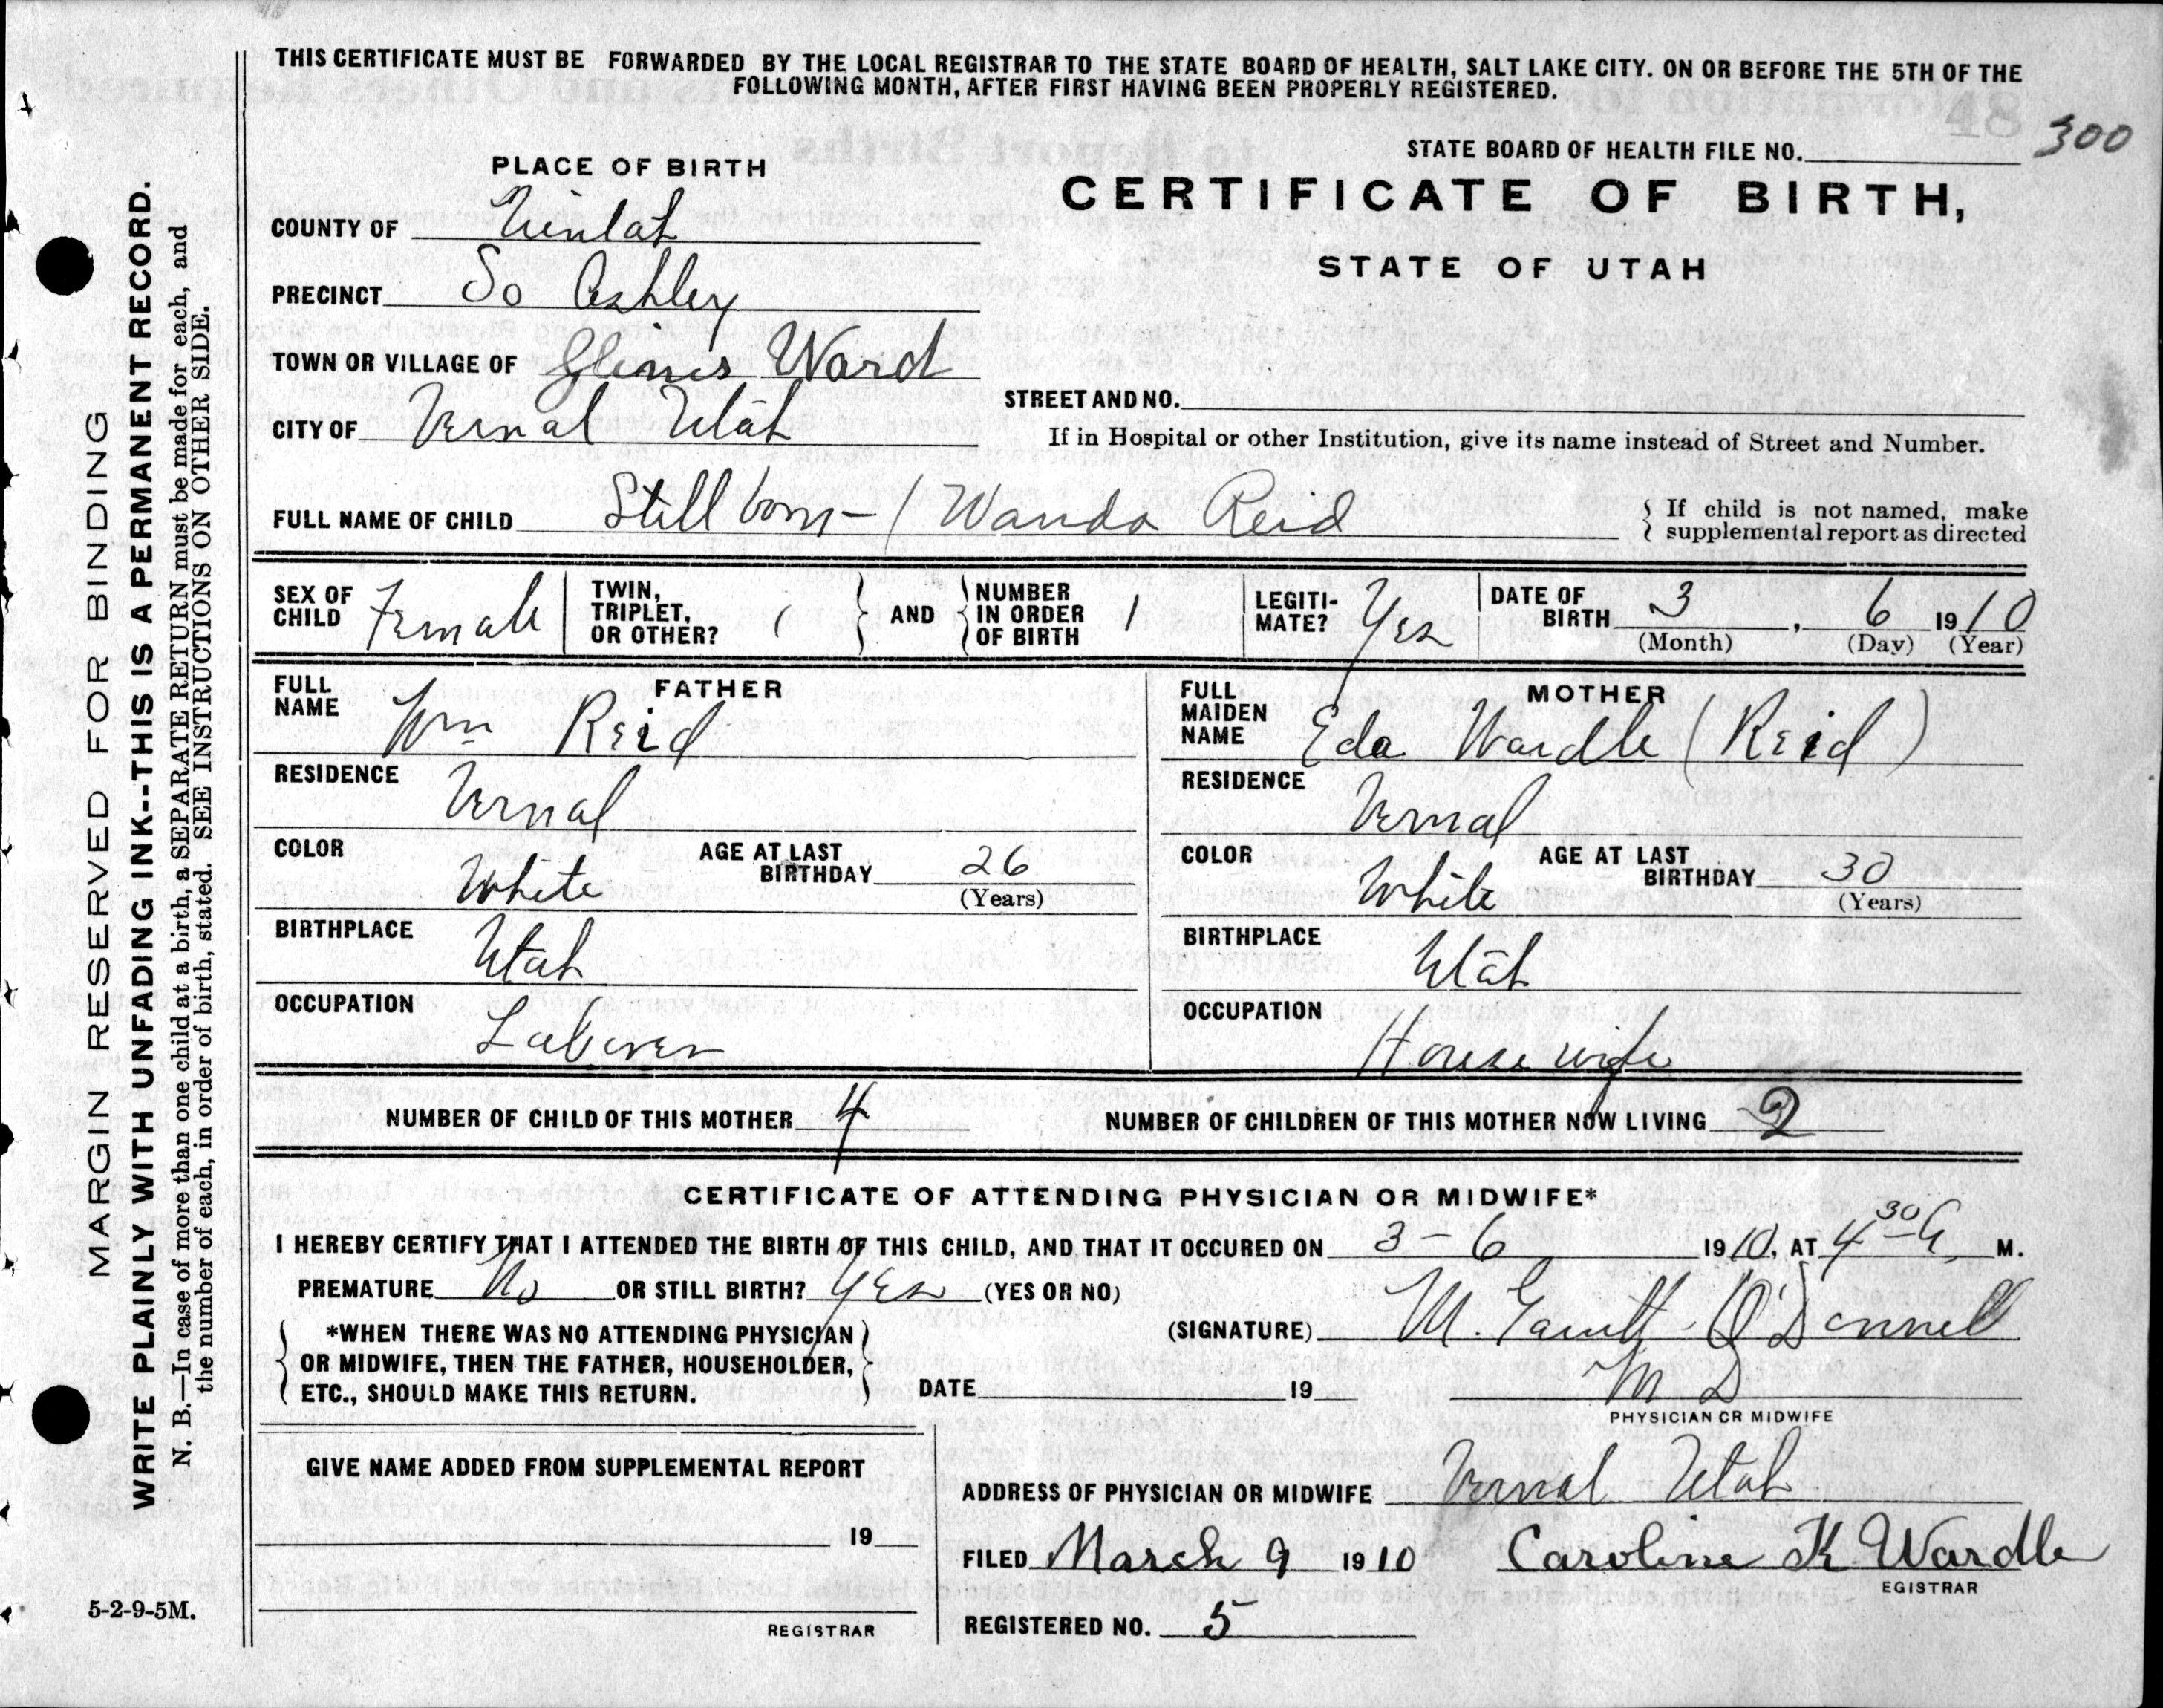 THIS CERTIFICATE MUST BE FORWARDED BY THE LOCAL REGISTRAR TO THE STATE BOARD OF HEALTH, SALT LAKE CITY. ON OR BEFORE THE 5TH OF THE
FOLLOWING MONTH, AFTER FIRST HAVING BEEN PROPERLY REGISTERED.
STATE BOARD OF HEALTH FILE NO. 300
PLACE OF BIRTH
CERTIFICATE OF BIRTH,
STATE OF UTAH
COUNTY OF
PRECINCT So Ashley
TOWN OR VILLAGE OF Glines Ward
CITY OF Vernal Utah
STREET AND NO.
If in Hospital or other Institution, give its name instead of Street and Number.
FULL NAME OF CHILD Still born - (Wanda Reid
If child is not named, make
supplemental report as directed
SEX OF CHILD Female
TWIN, TRIPLET, OR OTHER? 1
AND
NUMBER IN ORDER OF BIRTH 1
LEGITI-MATE? Yes
DATE OF BIRTH 3, 6 1910
(Month) (Day) (Year)
FATHER
FULL NAME Wm Reid
RESIDENCE Vernal
COLOR White
AGE AT LAST BIRTHDAY 26
(Years)
BIRTHPLACE Utah
OCCUPATION Laborer
MOTHER
FULL MAIDEN NAME Eda Wardle (Reid)
RESIDENCE Vernal
COLOR White
AGE AT LAST BIRTHDAY 30
(Years)
BIRTHPLACE Utah
OCCUPATION House wife
NUMBER OF CHILD OF THIS MOTHER 4
NUMBER OF CHILDREN OF THIS MOTHER NOW LIVING 2
CERTIFICATE OF ATTENDING PHYSICIAN OR MIDWIFE*
I HEREBY CERTIFY THAT I ATTENDED THE BIRTH OF THIS CHILD, AND THAT IT OCCURED ON 3 - 6 1910, AT 4 30 - A. M.
PREMATURE No OR STILL BIRTH? Yes (YES OR NO)
*WHEN THERE WAS NO ATTENDING PHYSICIAN
OR MIDWIFE, THEN THE FATHER, HOUSEHOLDER,
ETC., SHOULD MAKE THIS RETURN.
(SIGNATURE) M. O'Donnell
M D
DATE 19
PHYSICIAN OR MIDWIFE
GIVE NAME ADDED FROM SUPPLEMENTAL REPORT
19
REGISTRAR
ADDRESS OF PHYSICIAN OR MIDWIFE Vernal Utah
FILED March 9 1910 Caroline K Wardle
EGISTRAR
REGISTERED NO. 5
MARGIN RESERVED FOR BINDING
WRITE PLAINLY WITH UNFADING INK--THIS IS A PERMANENT RECORD.
N. B.—In case of more than one child at a birth, a SEPARATE RETURN must be made for each, and
the number of each, in order of birth, stated. SEE INSTRUCTIONS ON OTHER SIDE.
5-2-9-5M.